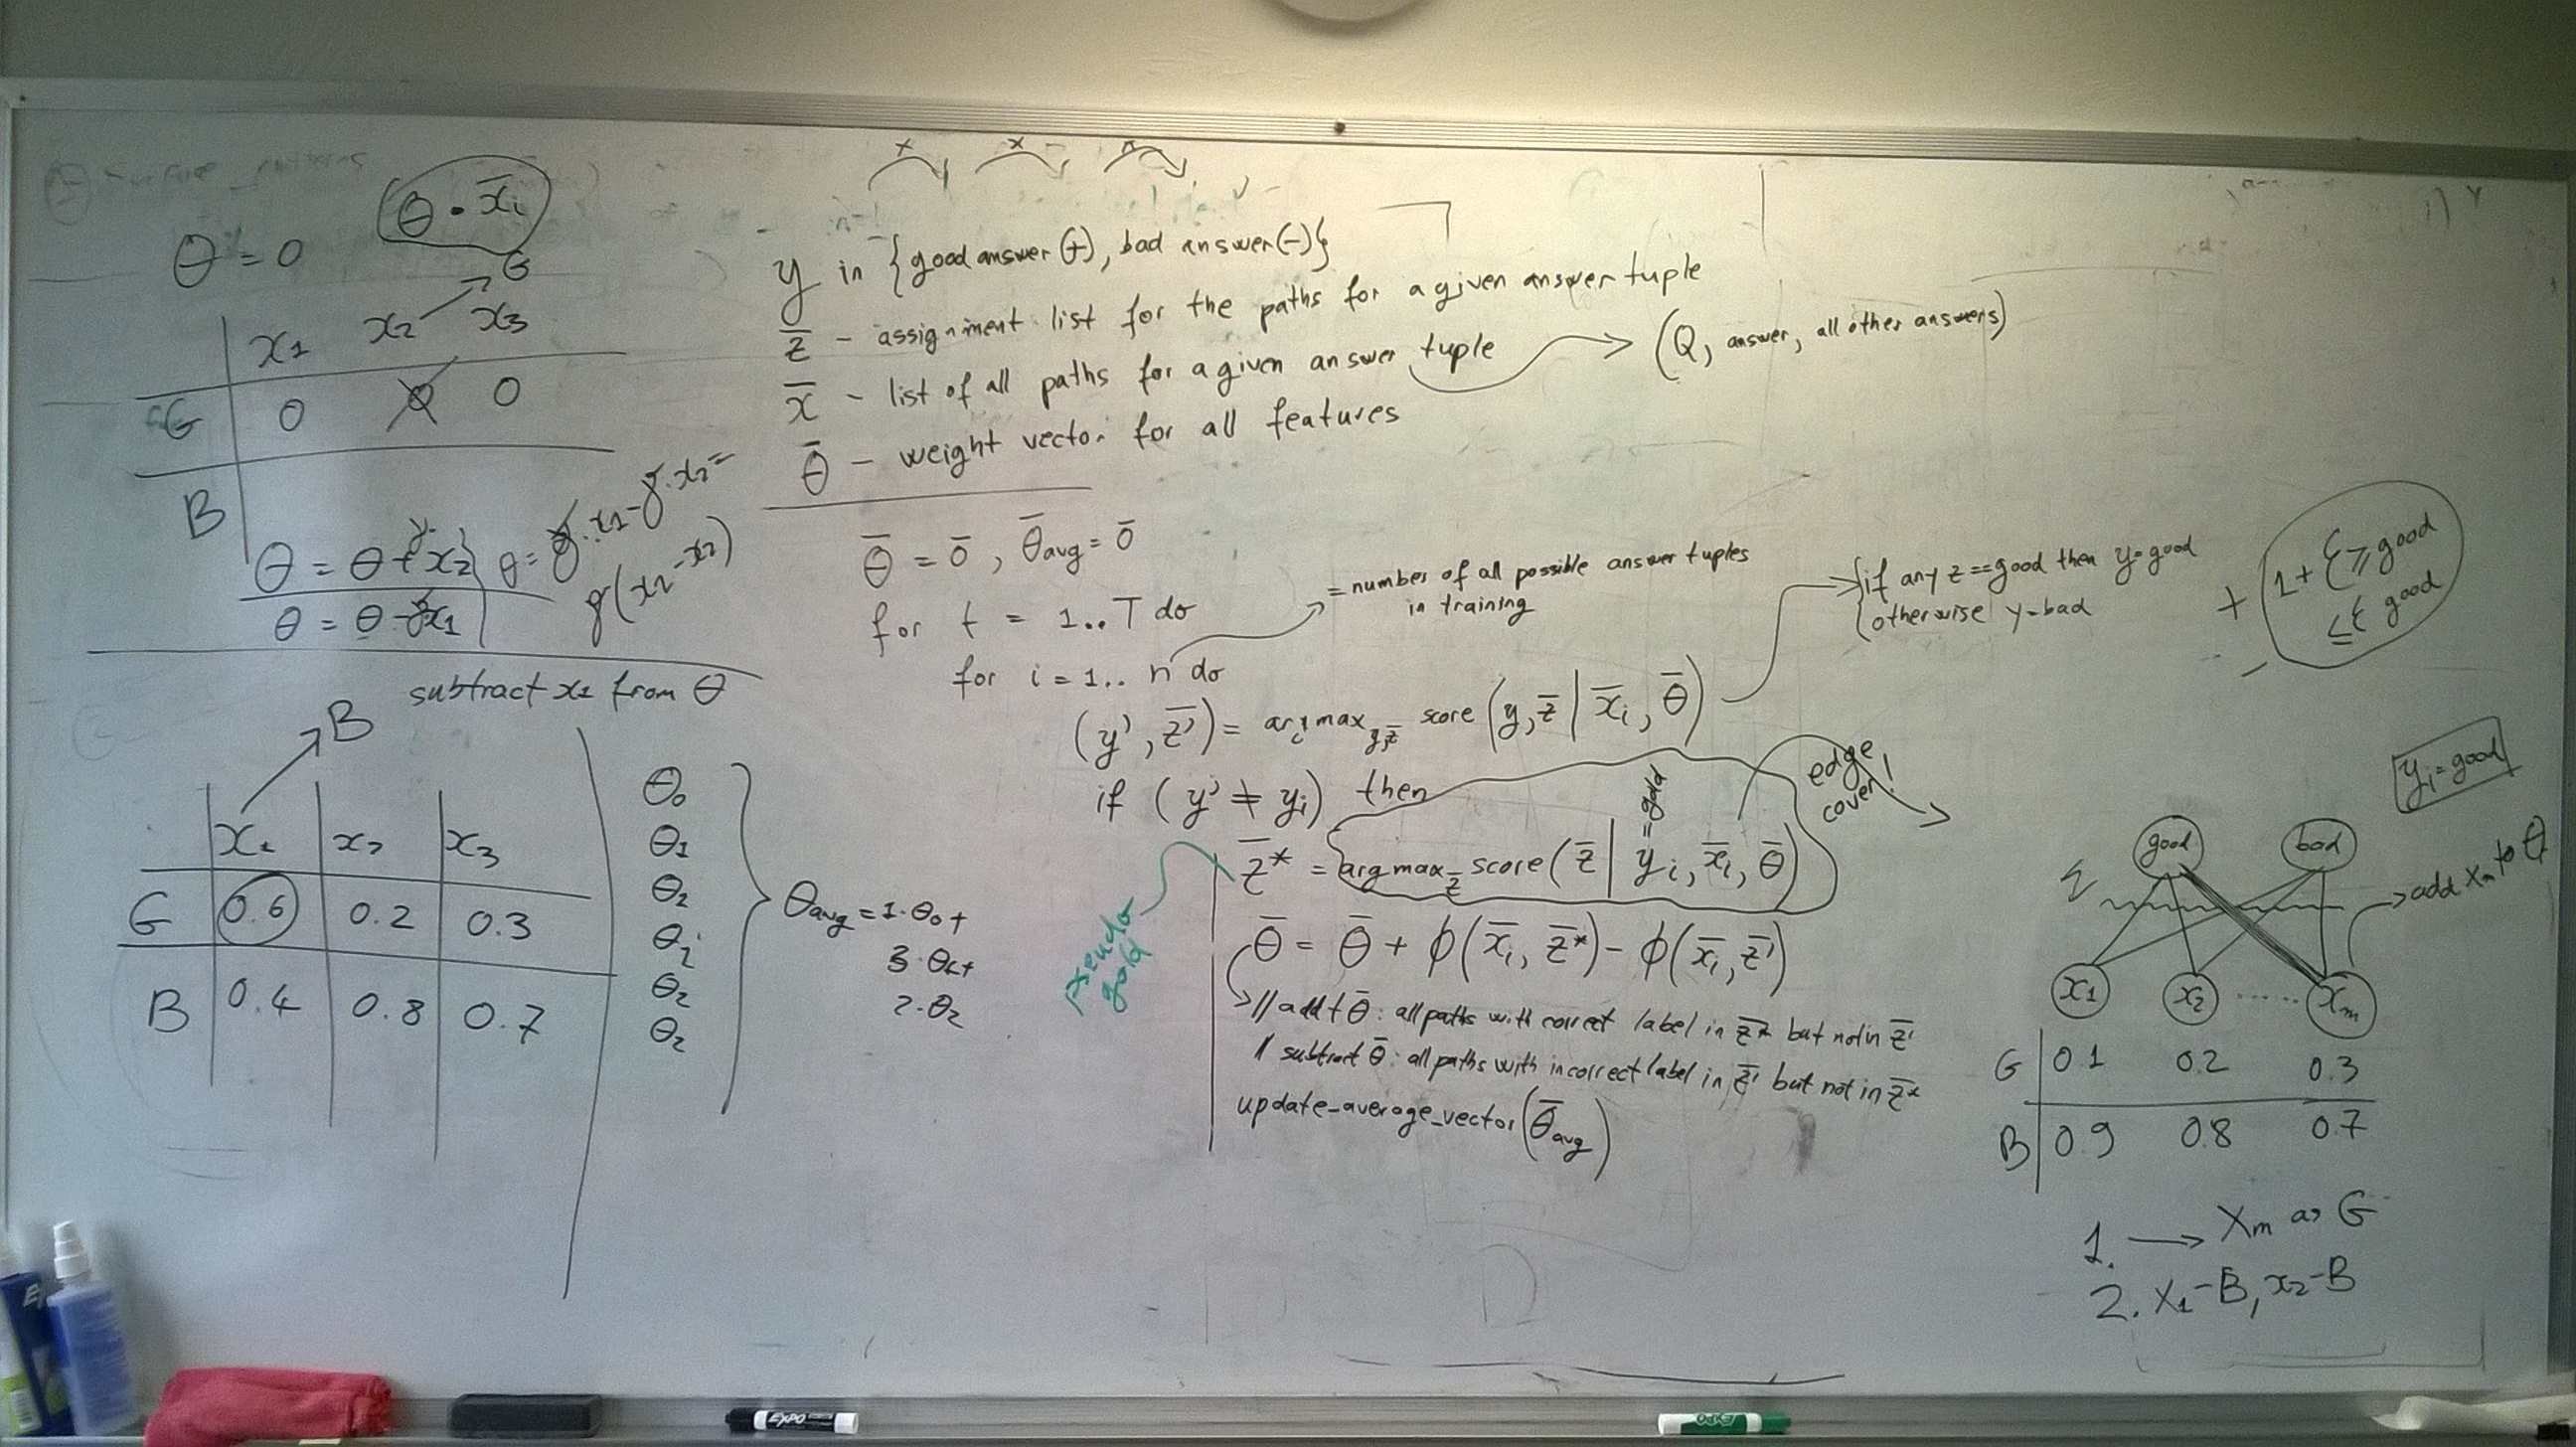 θ = 0
θ · x̄i
G
x1 x2 x3
G 0 0 0
B
θ = θ + γ·x2
θ = θ - γx1
γ(x2 - x2)
subtract x1 from θ
B
x1 x2 x3
G 0.6 0.2 0.3
B 0.4 0.8 0.7
θ0
θ1
θ2
θ2
θ2
θ2
θavg = 1·θ0 +
3·θ1+
2·θ2
y in {good answer (+), bad answer (-)}
z̄ - assignment list for the paths for a given answer tuple
x̄ - list of all paths for a given answer tuple
(Q, answer, all other answers)
θ̄ - weight vector for all features
θ̄ = 0̄, θ̄avg = 0̄
for t = 1..T do
for i = 1.. n do
= number of all possible answer tuples
in training
(y', z̄') = argmax y,z̄ score (y, z̄ | x̄i, θ̄)
{if any z == good then y=good
otherwise y=bad
if (y' ≠ yi) then
z̄* = argmax z̄ score (z̄ | yi, x̄i, θ̄)
=gold
edge
cover!
pseudo
gold
θ̄ = θ̄ + ϕ(x̄i, z̄*) - ϕ(x̄i, z̄')
// add t θ̄: all paths with correct label in z̄* but not in z̄'
// subtract θ̄: all paths with incorrect label in z̄' but not in z̄*
update_average_vector(θ̄avg)
+
1+ ξ ≥ good
≤ξ good
-
yi = good
good bad
ξ
add xm to θ
x1 x2 ..... xm
G 0.1 0.2 0.3
B 0.9 0.8 0.7
1. → Xm as G
2. X1-B, x2-B
EXPO
EXPO